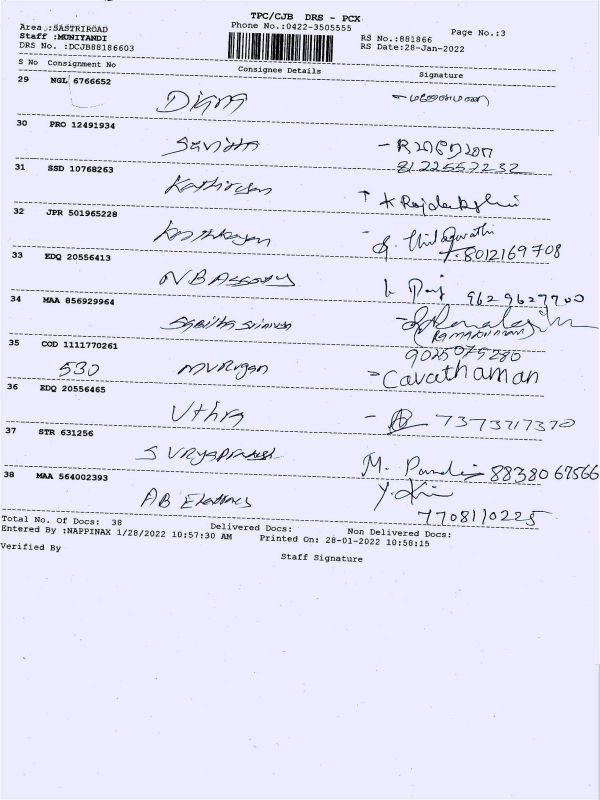 TPC/CJB DRS - PCX
Area :SASTRIROAD Phone No.:0422-3505555 Page No.:3
Staff :MUNIYANDI RS No.:881866
DRS No. :DCJB88186603 RS Date:28-Jan-2022
S No Consignment No Consignee Details Signature
29 NGL 6766652
Diana
30 PRO 12491934
Savitha
8122557232
31 SSD 10768263
Kathirvsen
32 JPR 501965228
8012169708
33 EDQ 20556413
NB
9629627700
34 MAA 856929964
Sabitha
35 COD 1111770261
9025075280
530 Murugan Cavathaman
36 EDQ 20556465
Uthra 7373717370
37 STR 631256
M. Pandi 88380 67566
38 MAA 564002393
AB
7708110225
Total No. Of Docs: 38 Delivered Docs: Non Delivered Docs:
Entered By :NAPPINAX 1/28/2022 10:57:30 AM Printed On: 28-01-2022 10:58:15
Verified By Staff Signature